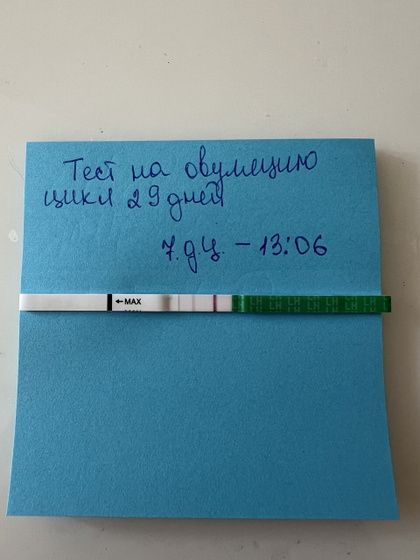 Тест на овуляцию
цикл 29 дней
7.д.ц. - 13:06
←MAX
LH LH LH LH LH LH LH